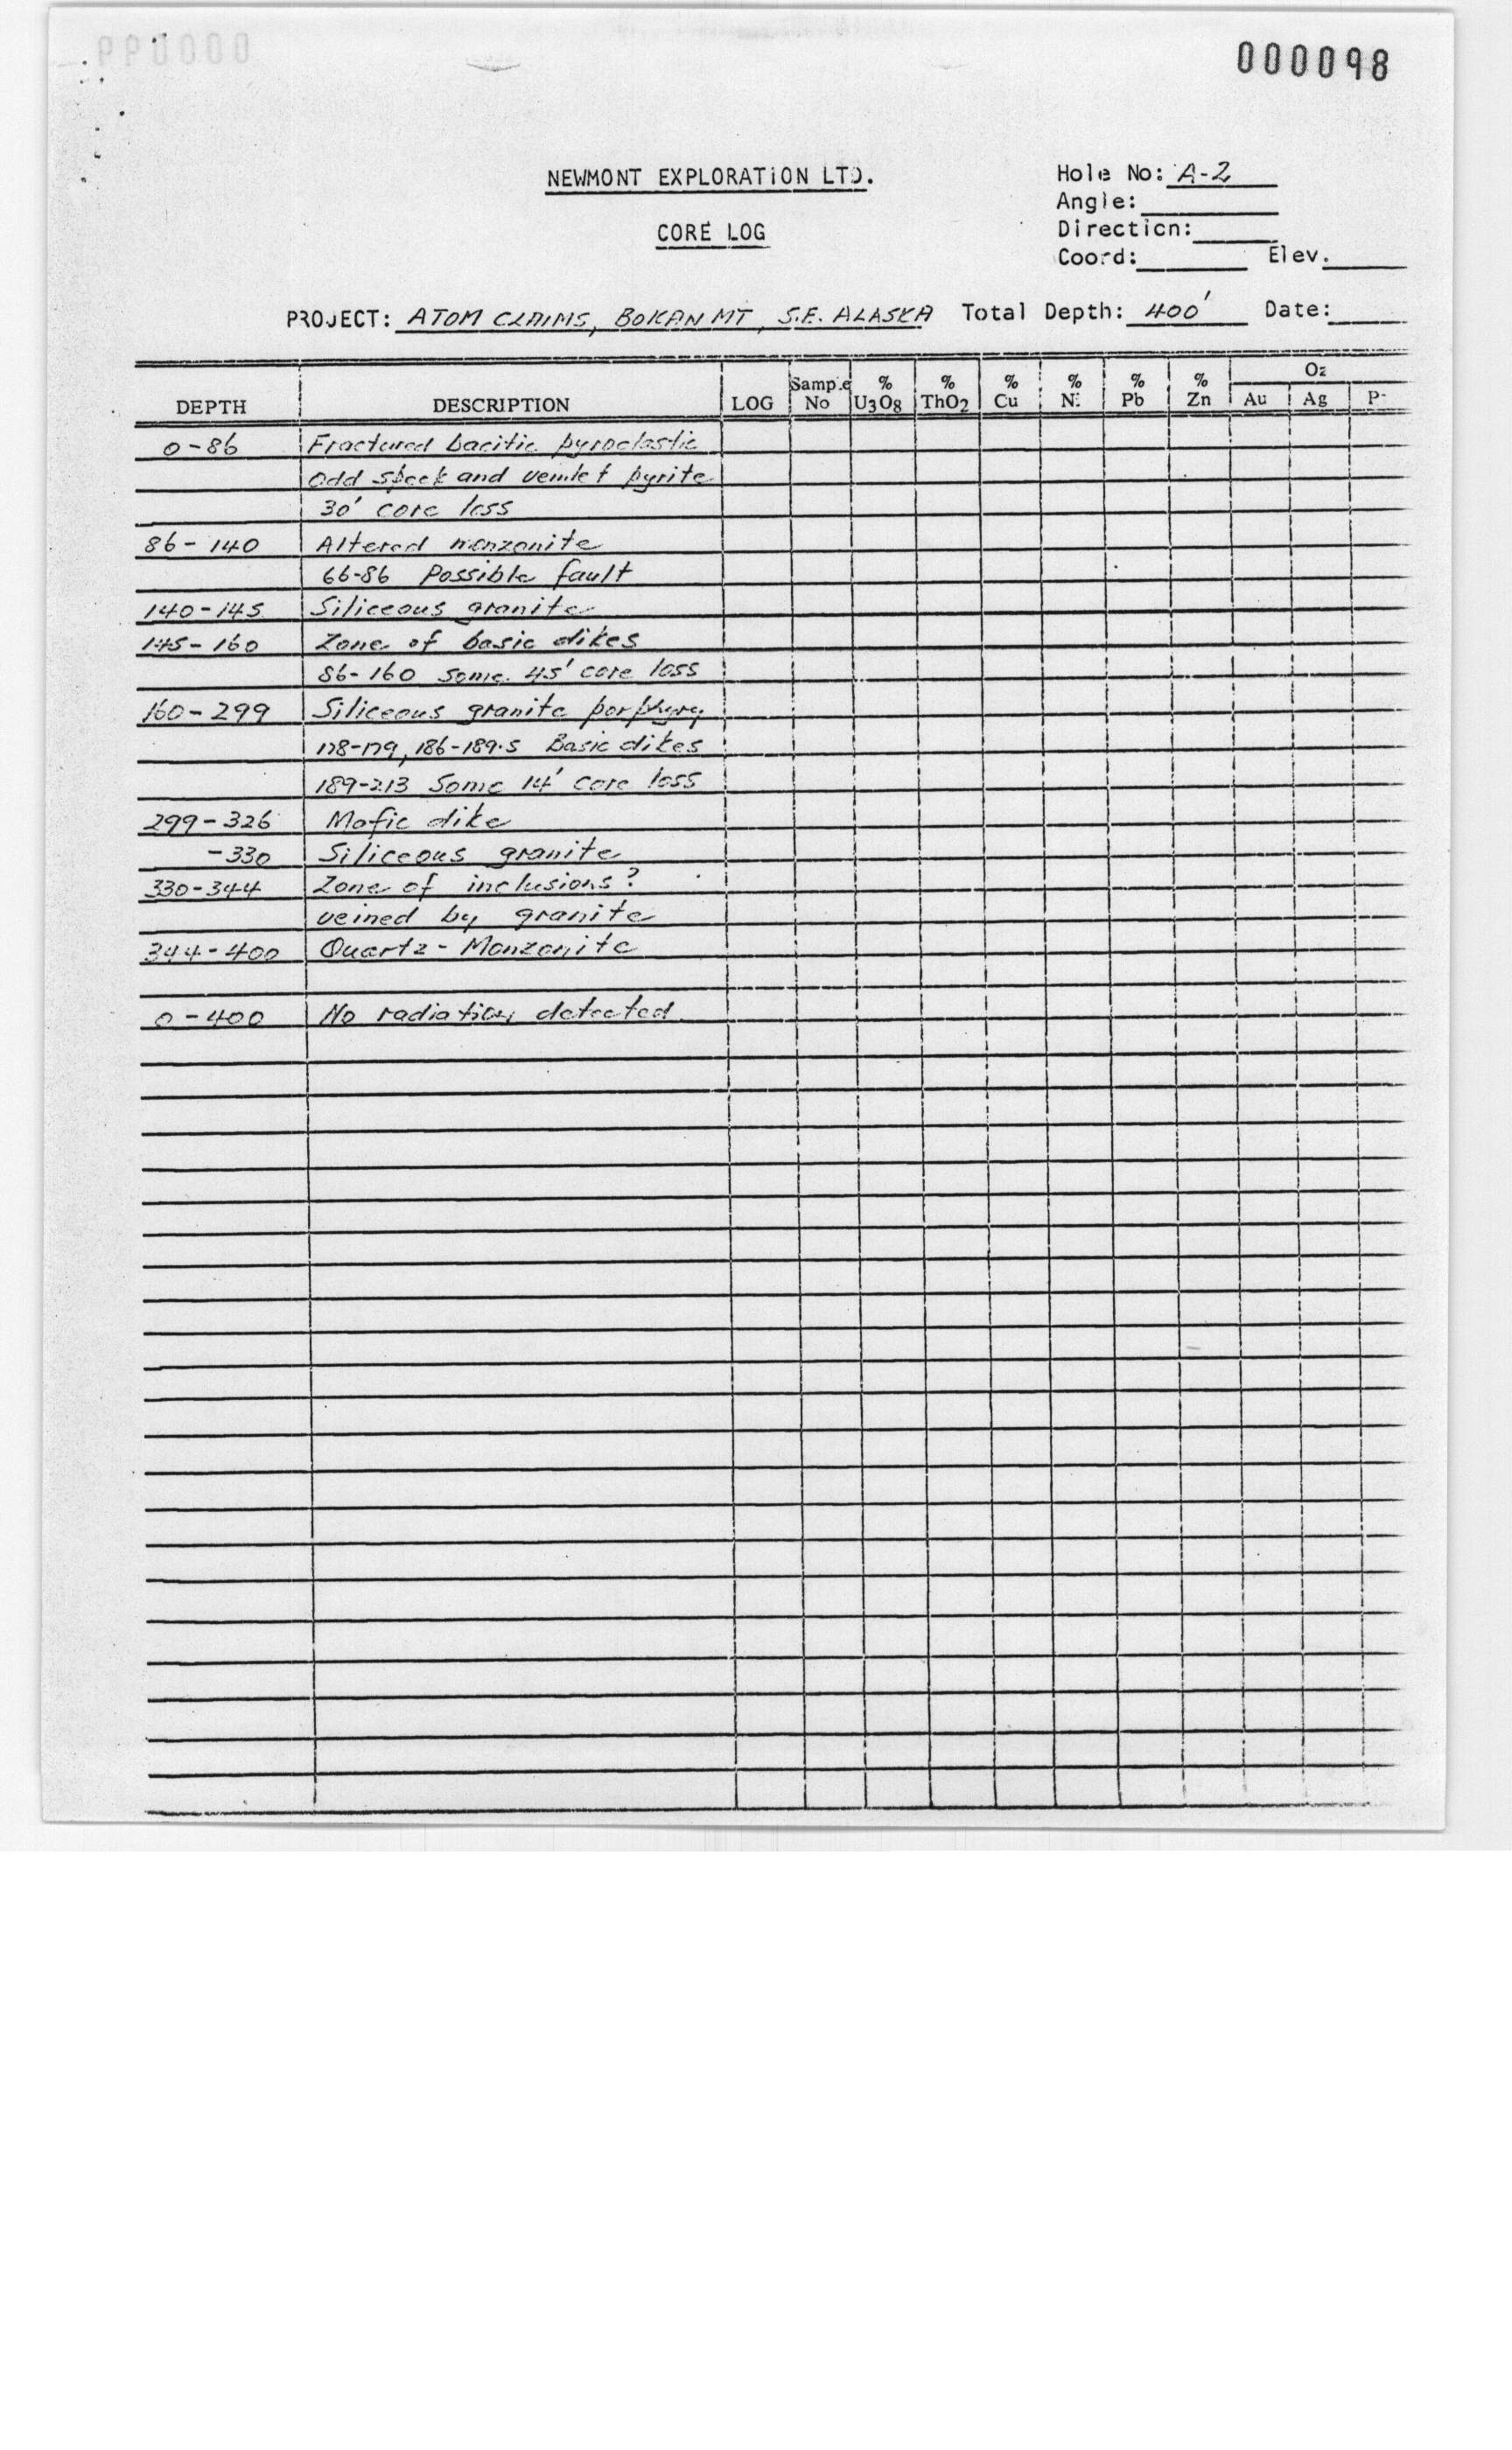 000098
NEWMONT EXPLORATION LTD.
CORE LOG
Hole No: A-2
Angle:
Direction:
Coord: Elev.
PROJECT: ATOM CLAIMS, BOKAN MT, S.E. ALASKA Total Depth: 400' Date:
DEPTH DESCRIPTION LOG Sample No % U3O8 % ThO2 % Cu % Ni % Pb % Zn Oz Au Ag
0-86 Fractured dacitic pyroclastic
Odd speck and veinlet pyrite
30' core loss
86-140 Altered monzonite
66-86 Possible fault
140-145 Siliceous granite
145-160 Zone of basic dikes
86-160 Some 45' core loss
160-299 Siliceous granite porphyry
178-179, 186-189.5 Basic dikes
189-213 Some 14' core loss
299-326 Mafic dike
-330 Siliceous granite
330-344 Zone of inclusions?
veined by granite
344-400 Quartz-Monzonite
0-400 No radiation detected.